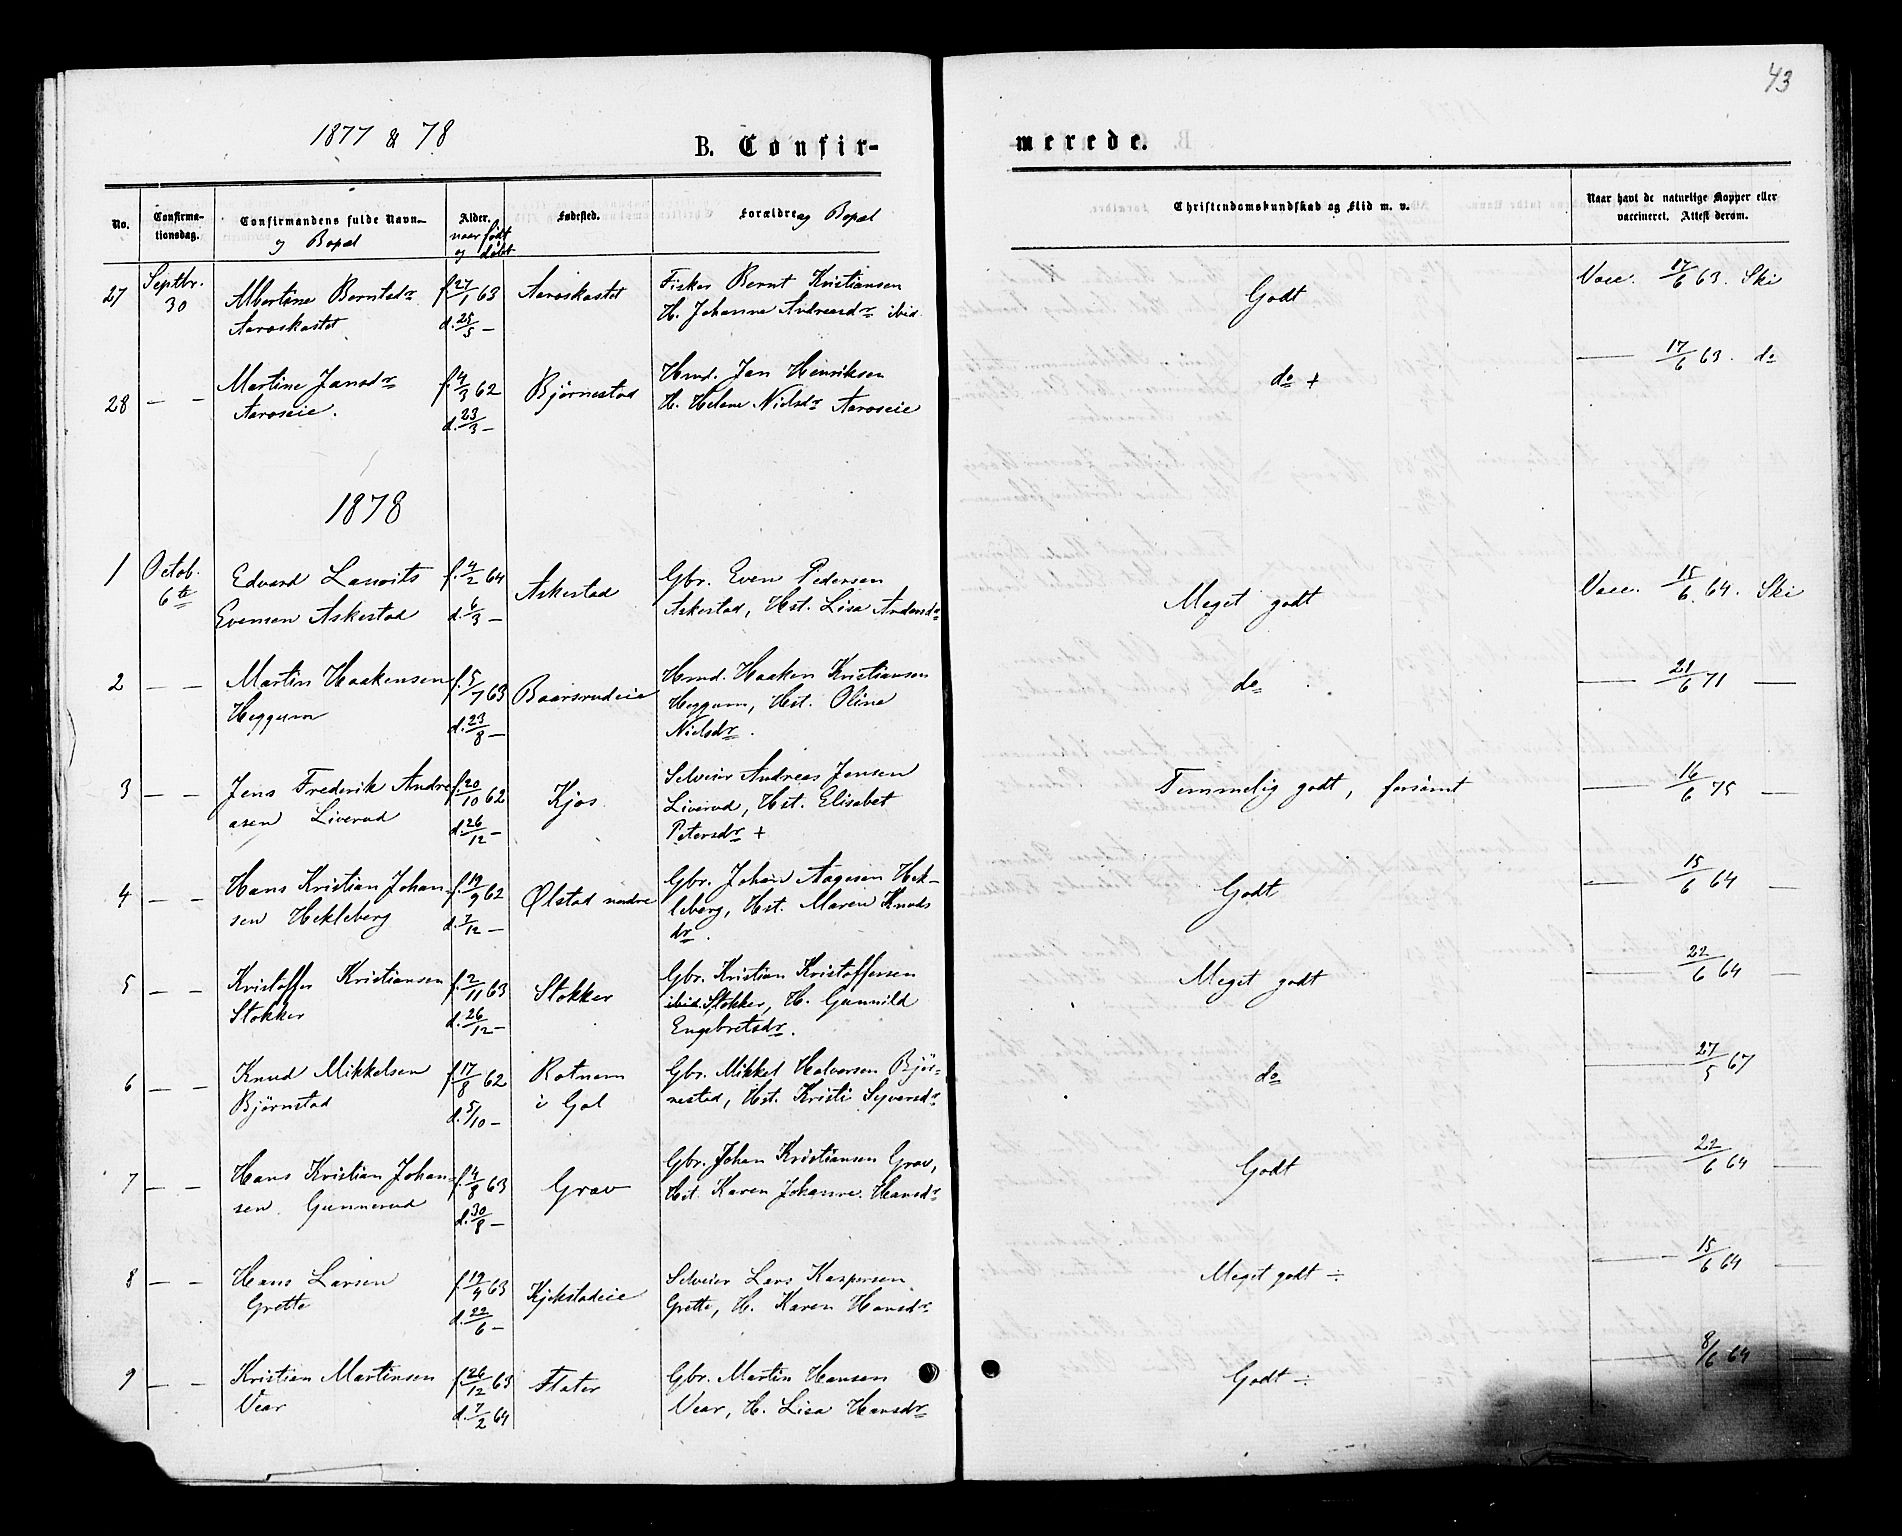 43
1877 & 78
B. Confir-
merede.
No.
Confirma-
tionsdag.
Confirmandens fulde Navn
og Bopæl
Alder.
naar født
og døbt
Fødested.
Forældre og Bopæl
Christendomskundskab og Flid m. v.
Naar havt de naturlige Kopper eller
vaccineret. Attest derom.
27 Septbr. 30 Albertine Berntsdr. Aaroskastet f. 27/1 63 d. 25/5 — Aaroskastet Fisker Bernt Kristiansen
H. Johanne Andreasdr. ibid. Godt Vacc. 17/6 63. Ski
28 — — Martine Jansdr. Aaroseie. f. 4/3 62 d. 23/3 — Bjørnestad Hmd. Jan Henriksen
H. Helene Nielsdr. Aaroseie do + — 17/6 63. do
1878
1 Octob. 6te Edvard Lauvits
Evensen Askestad f. 4/2 64 d. 6/3 — Askestad Gbr. Even Pedersen
Askestad, Hst. Lisa Andersdr. Meget godt Vacc. 15/6 64. Ski
2 — — Martin Haakensen
Heggum f. 5/7 63 d. 23/8 — Baarsrudeie Hmd. Haaken Kristiansen
Heggum, Hst. Oline
Nielsdr. do — 21/6 71 —
3 — — Jens Frederik Andre
asen Liverud f. 20/10 62 d. 26/12 — Kjos Selveier Andreas Jensen
Liverud, Hst. Elisabet
Petersdr. + Temmelig godt, forsømt — 16/6 75 —
4 — — Hans Kristian Johan-
sen Hekleberg f. 19/9 62 d. 7/12 — Ølstad nordre Gbr. Johan Aagesen Hek-
leberg, Hst. Maren Knuds
dr. Godt — 15/6 64 —
5 — — Kristoffer Kristiansen
Stokker f. 2/11 63 d. 26/12 — Stokker Gbr. Kristian Kristoffersen
ibid. Stokker, H. Gunnild
Engebretsdr. Meget godt — 22/6 64 —
6 — — Knud Mikkelsen
Bjørnstad f. 17/8 62 d. 5/10 — Rotnem
i Gol Gbr. Mikkel Halvorsen Bjør-
nestad, Hst. Kristi Syversdr. do — 27/5 67
7 — — Hans Kristian Johan-
sen Gunnerud f. 4/8 63 d. 30/8 — Grav Gbr. Johan Kristiansen Grav,
Hst. Karen Johanne Hansdr. Godt — 22/6 64 —
8 — — Hans Larsen
Grette f. 19/4 63 d. 22/6 — Kjekstadeie Selveier Lars Kaspersen
Grette, H. Karen Hansdr. Meget godt ÷ — 15/6 64 —
9 — — Kristian Martinsen
Vear f. 26/12 63 d. 7/2 64 Flater Gbr. Martin Hansen
Vear, H. Lisa Hansdr. Godt ÷ — 8/6 64 —